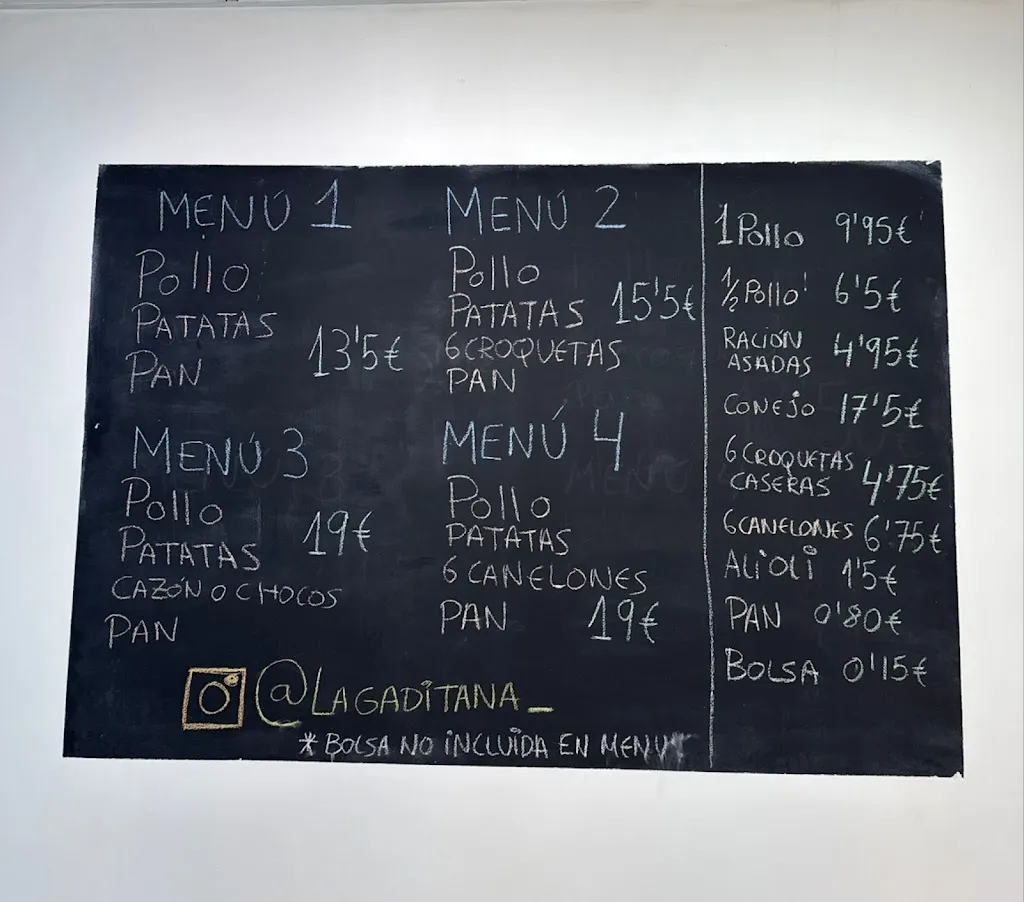 MENÚ 1
Pollo
PATATAS
PAN
13'5€
MENÚ 2
Pollo
PATATAS
15'5€
6 CROQUETAS
PAN
MENÚ 3
Pollo
PATATAS
19€
CAZÓN O CHOCOS
PAN
MENÚ 4
Pollo
PATATAS
6 CANELONES
PAN 19€
@LAGADITANA_
* BOLSA NO INCLUIDA EN MENU
1 Pollo 9'95€
1/2 Pollo 6'5€
RACIÓN
ASADAS 4'95€
CONEJO 17'5€
6 CROQUETAS
CASERAS 4'75€
6 CANELONES 6'75€
ALIOLI 1'5€
PAN 0'80€
BOLSA 0'15€